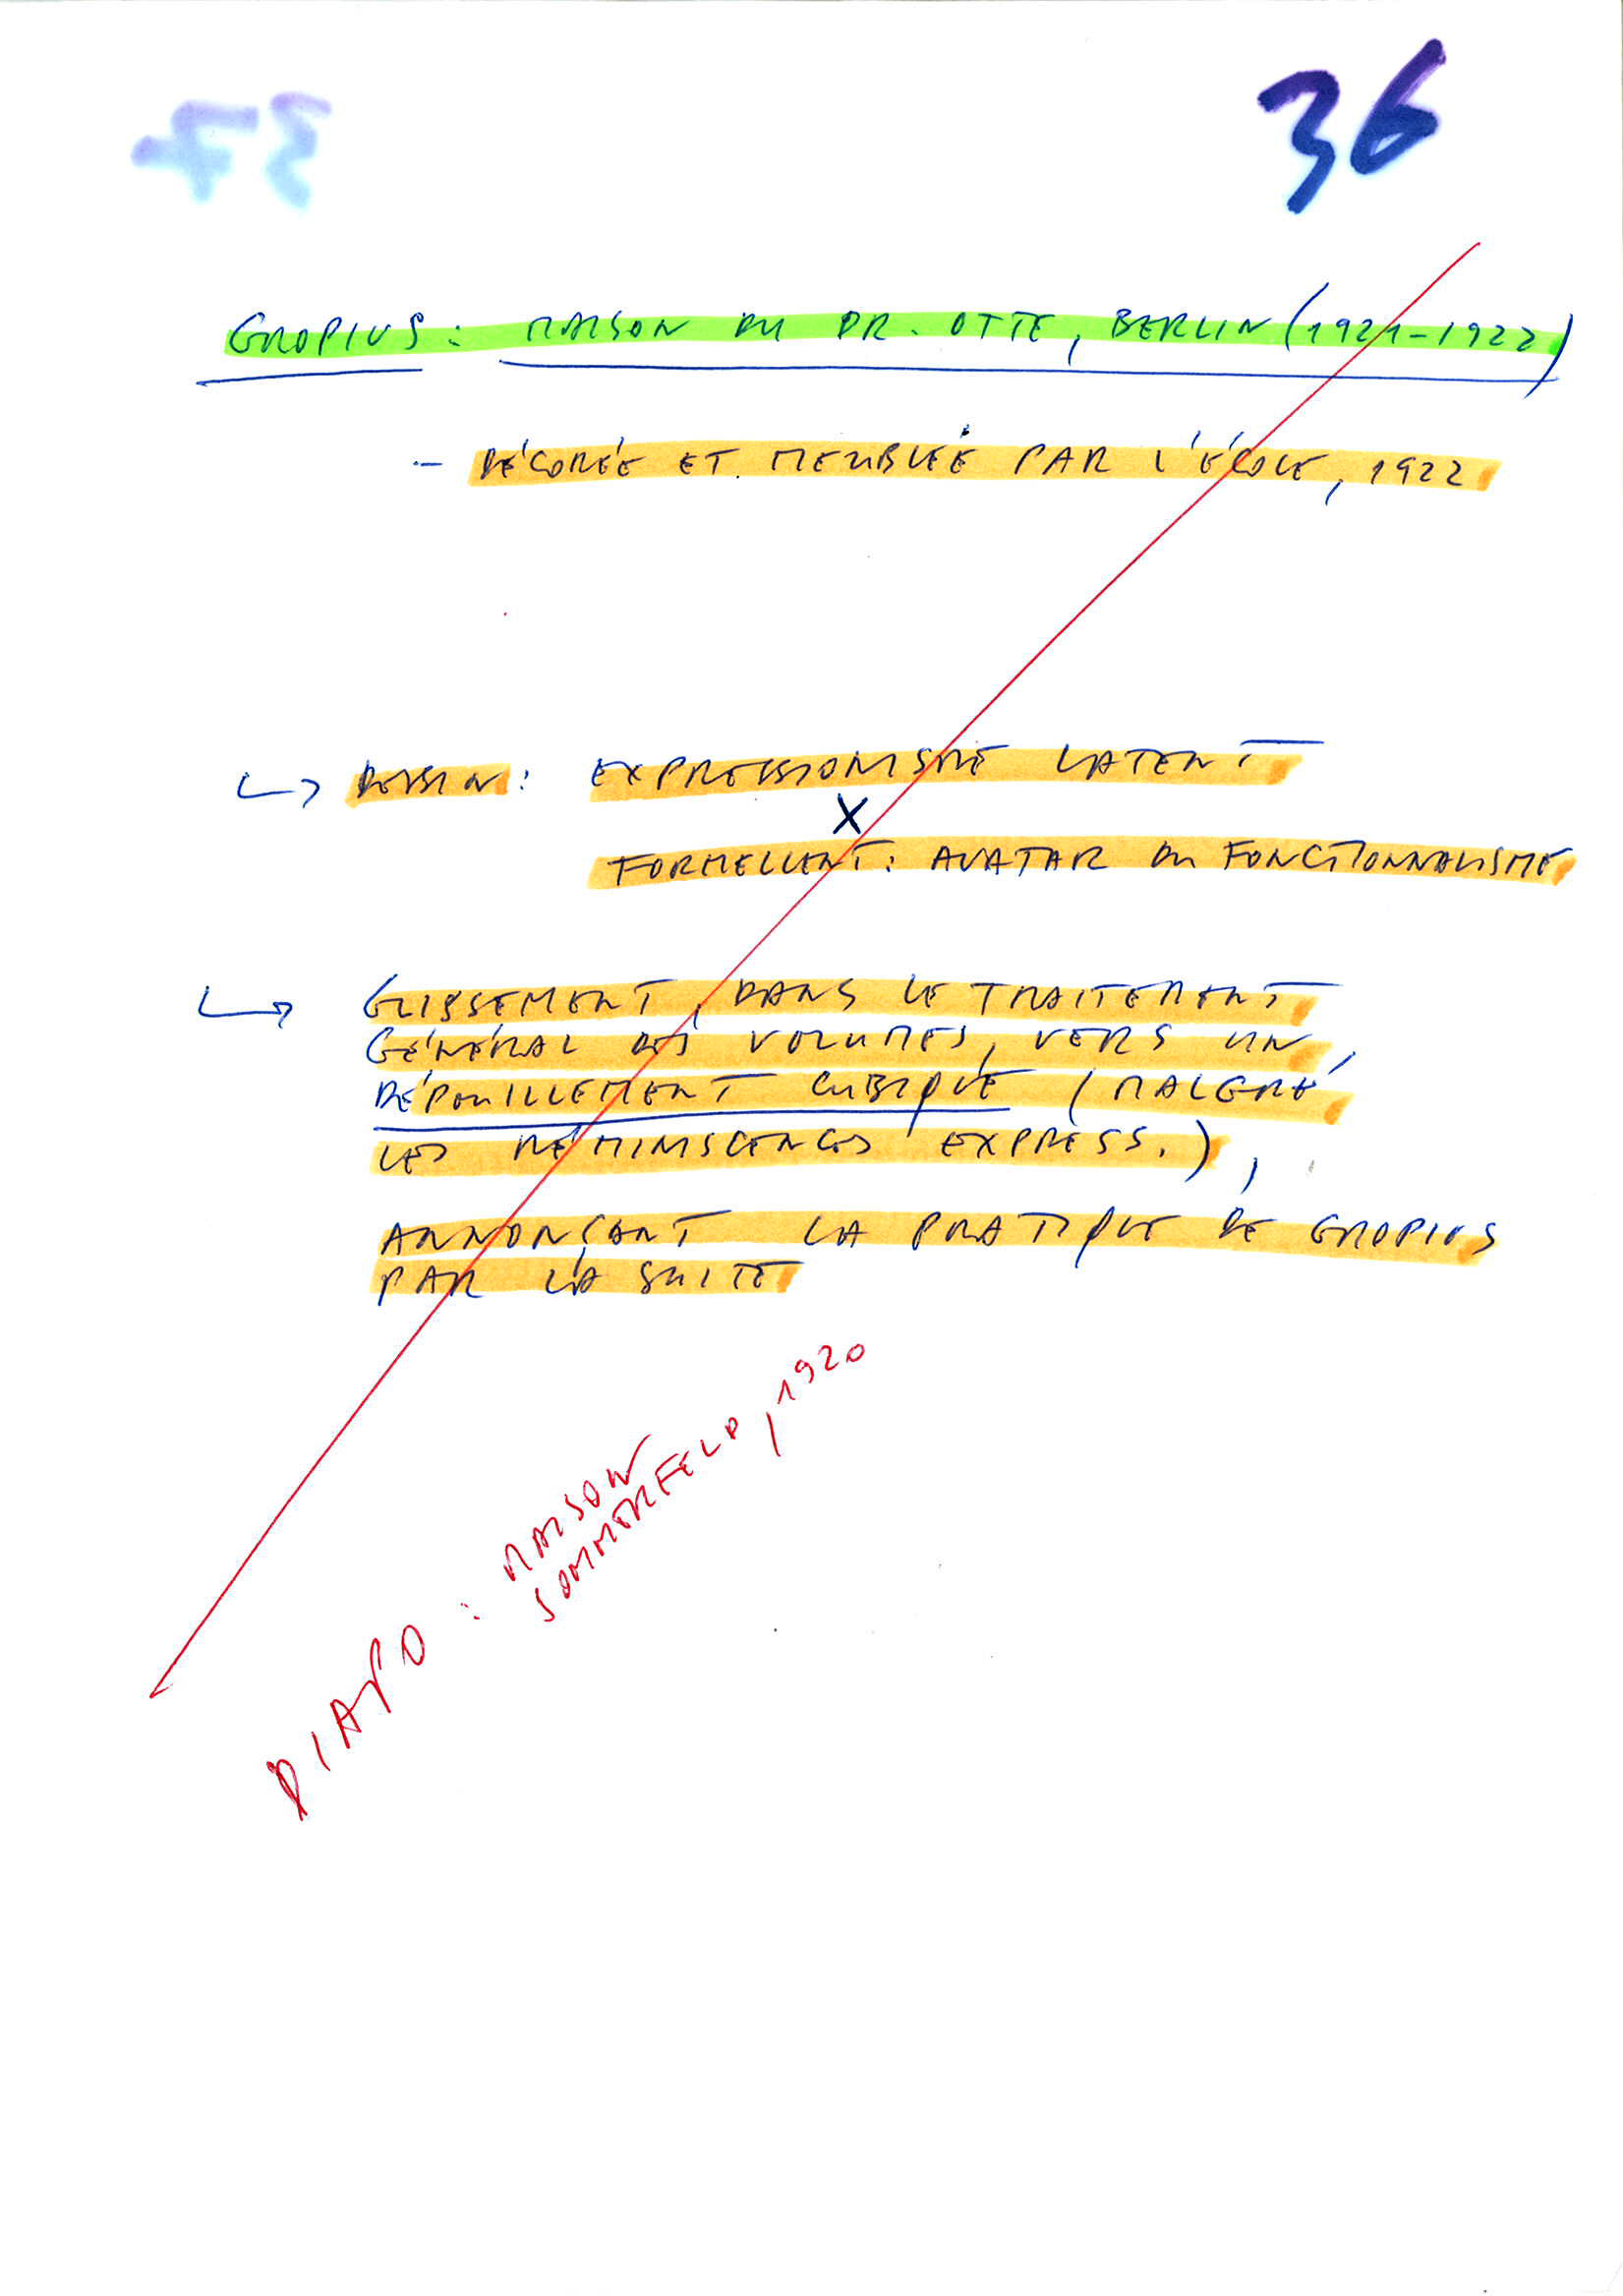 36
GROPIUS : MAISON DU DR. OTTE, BERLIN (1921-1922)
- DÉCORÉE ET MEUBLÉE PAR L'ÉCOLE, 1922
↳ DESSIN : EXPRESSIONISME LATENT
X
FORMELLENT : AVATAR DU FONCTIONNALISME
↳ GLISSEMENT, DANS LE TRAITEMENT
GÉNÉRAL DES VOLUMES, VERS UN
DÉPOUILLEMENT CUBIQUE (MALGRÉ
LES RÉMINISCENCES EXPRESS.),
ANNONÇANT LA PRATIQUE DE GROPIUS
PAR LA SUITE
DIAPO : MAISON
SOMMERFELD, 1920